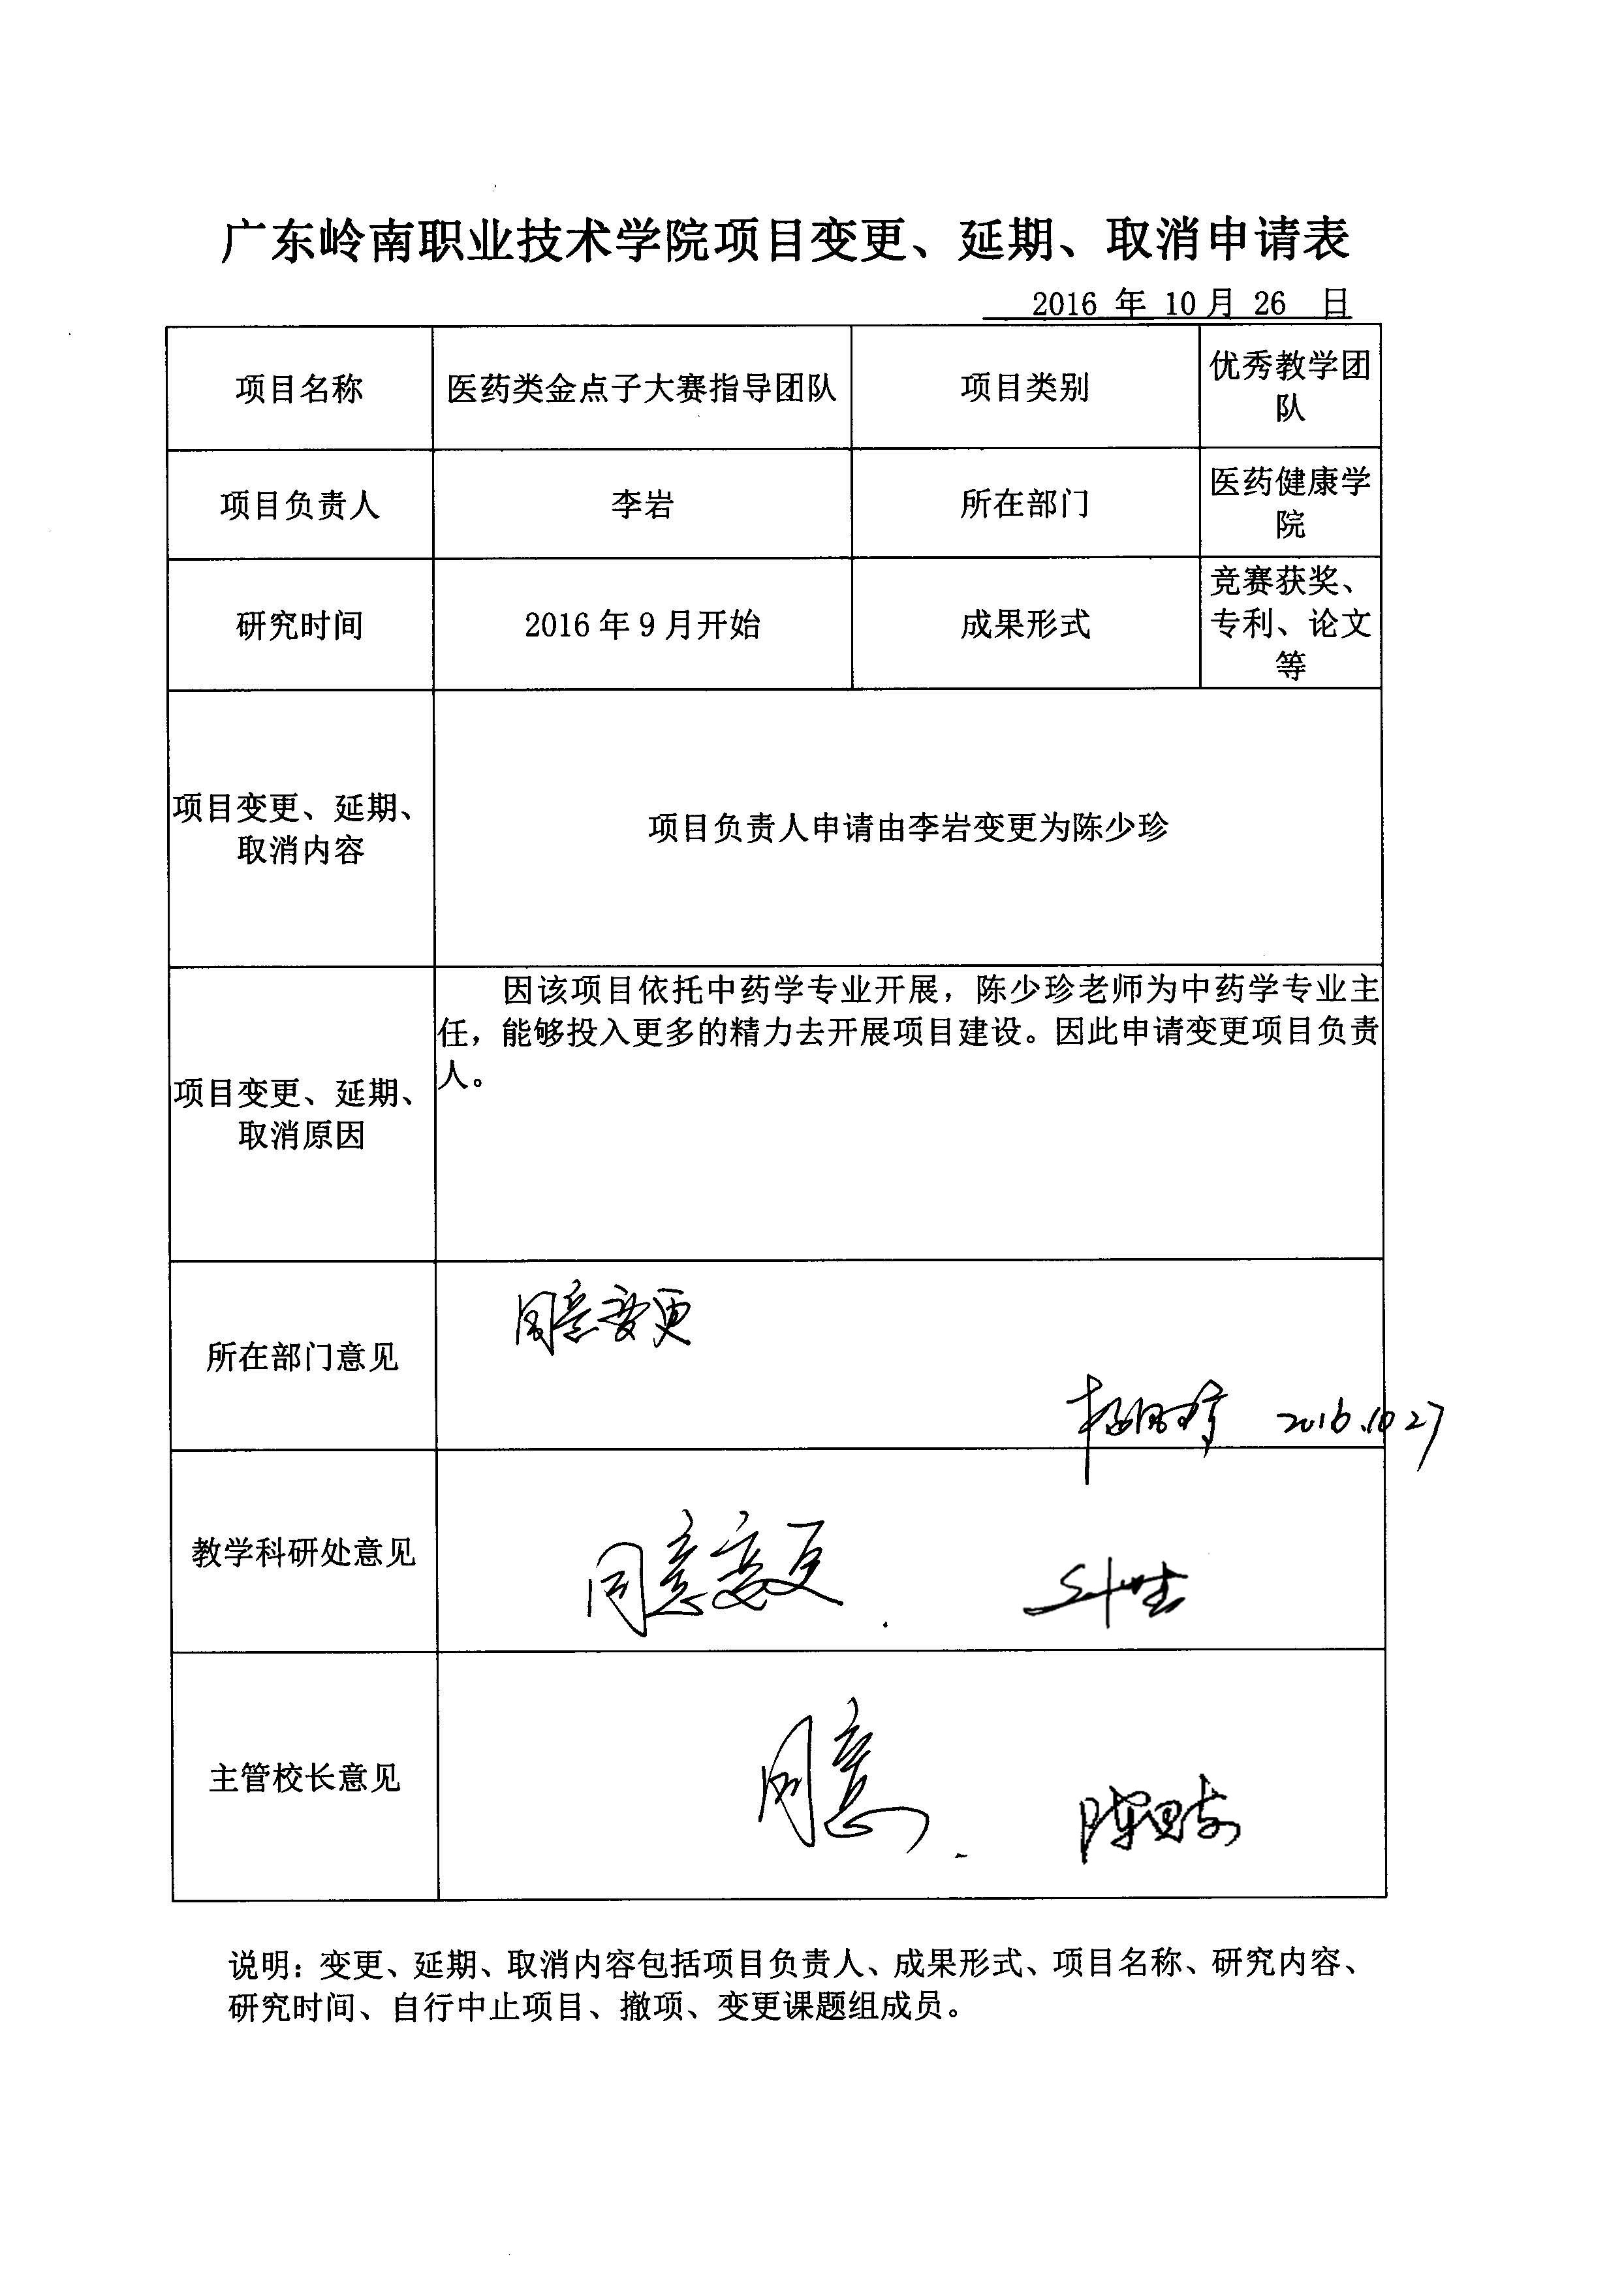 广东岭南职业技术学院项目变更、延期、取消申请表
2016 年 10 月 26 日
项目名称
医药类金点子大赛指导团队
项目类别
优秀教学团
队
项目负责人
李岩
所在部门
医药健康学
院
研究时间
2016 年 9 月开始
成果形式
竞赛获奖、
专利、论文
等
项目变更、延期、
取消内容
项目负责人申请由李岩变更为陈少珍
项目变更、延期、
取消原因
因该项目依托中药学专业开展，陈少珍老师为中药学专业主
任，能够投入更多的精力去开展项目建设。因此申请变更项目负责
人。
所在部门意见
同意变更
2016.10.27
教学科研处意见
同意变更.
主管校长意见
同意.
说明：变更、延期、取消内容包括项目负责人、成果形式、项目名称、研究内容、
研究时间、自行中止项目、撤项、变更课题组成员。